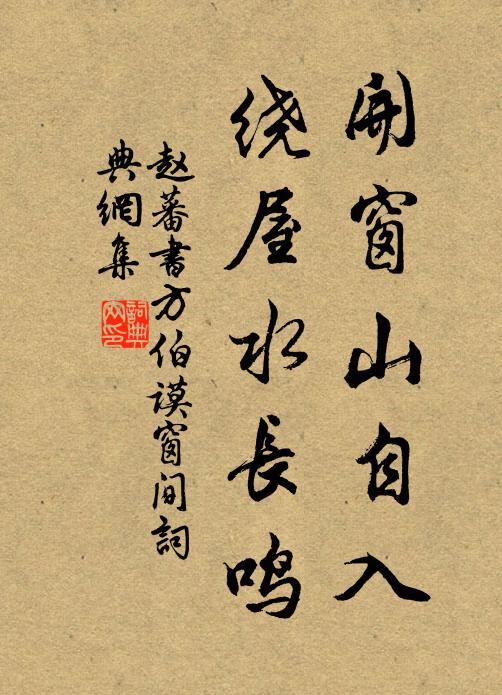 開窗山自入
绕屋水長鸣
赵蕃書方伯谟窗间詞
典網集
詞典
网印